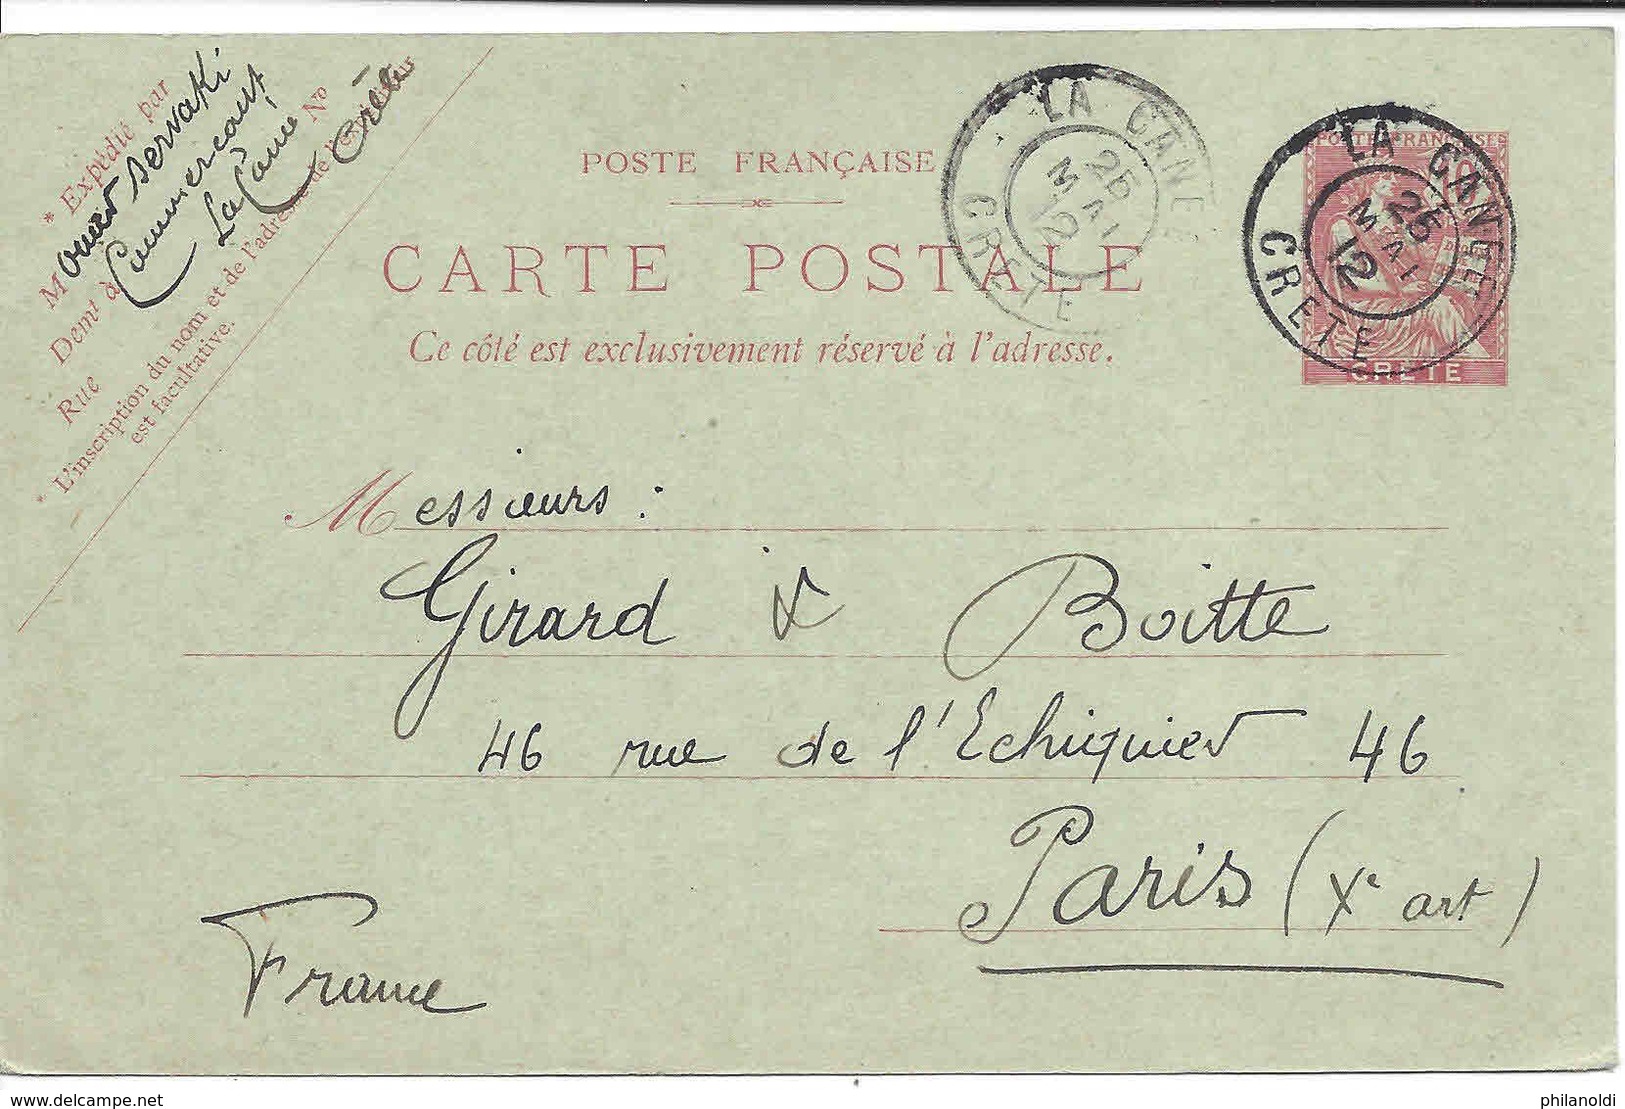 * Expédié par
M
servaki
Demt à Commercant
La Canée
Rue
Nº
Crète
* L'inscription du nom et de l'adresse de l'expéditeur
est facultative.
POSTE FRANÇAISE
CARTE POSTALE
Ce côté est exclusivement réservé à l'adresse.
LA CANEE
25
MAI
12
CRETE
POSTE FRANÇAISE
LA CANEE
25
MAI
12
CRETE
CRÈTE
Messieurs :
Girard & Boitte
46 rue de l'Echiquier 46
Paris (Xe art)
France
delcampe.net
philanoldi